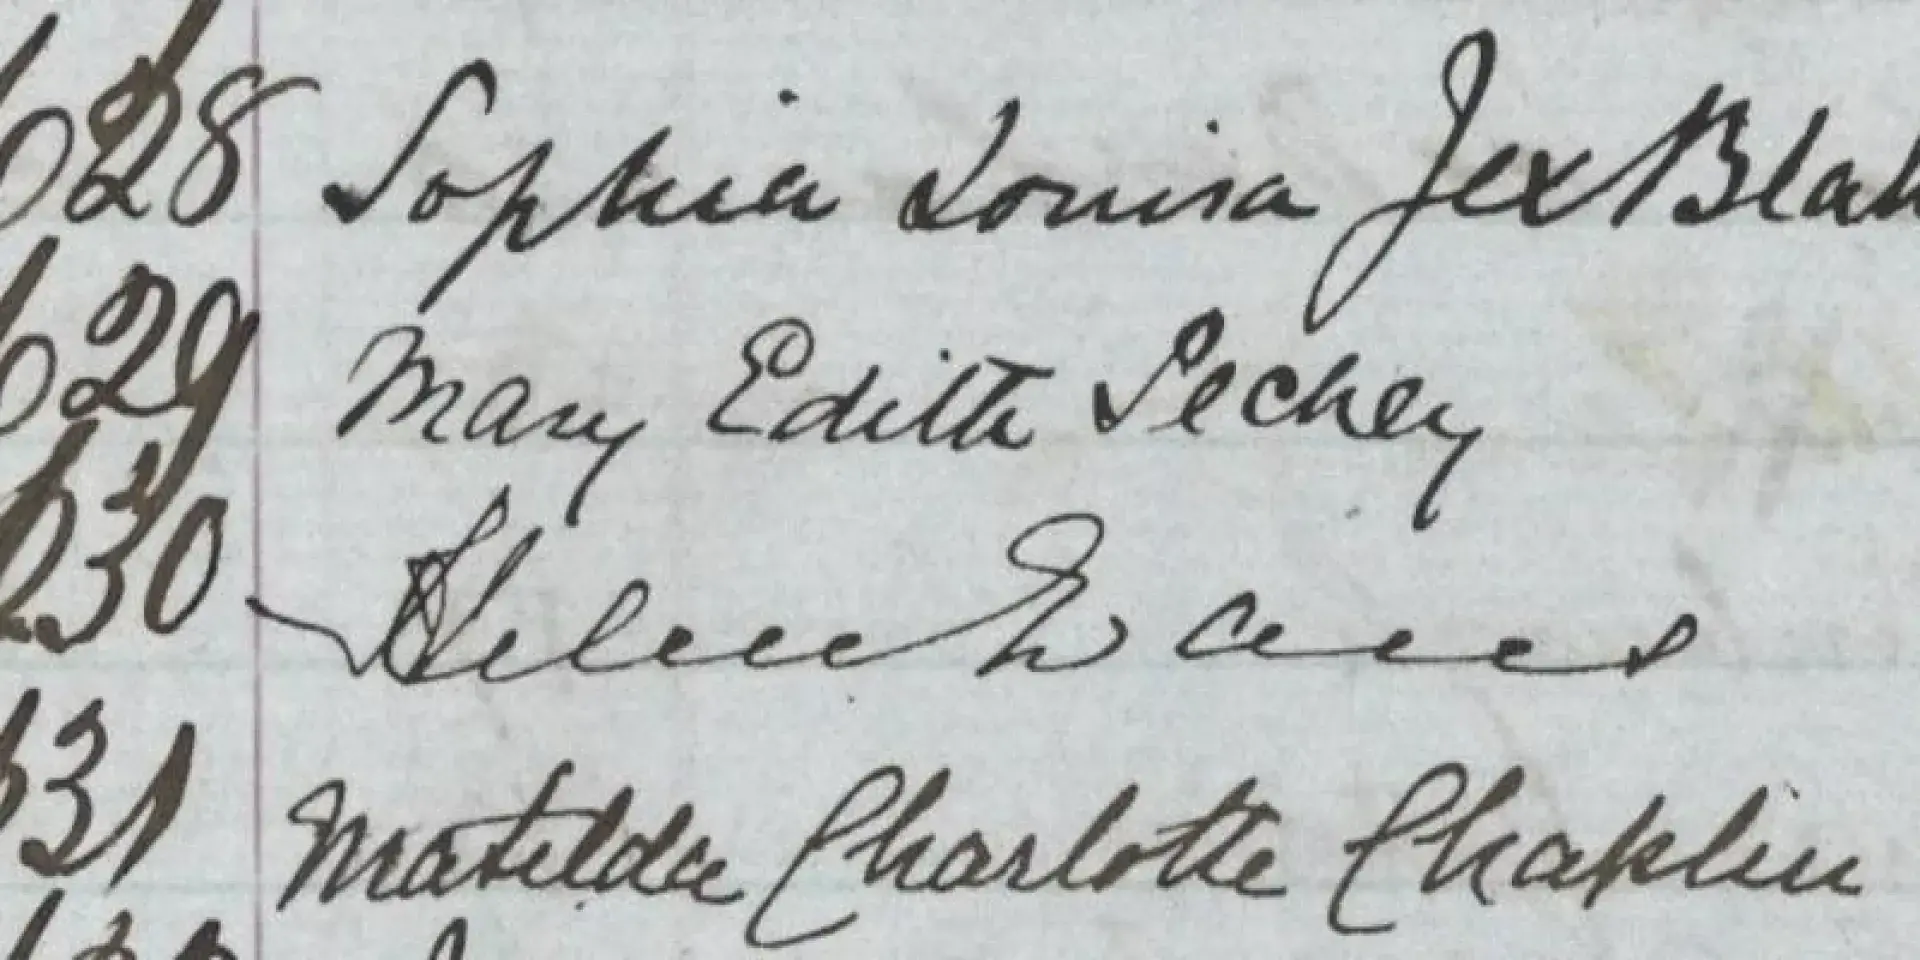 628 Sophia Louisa Jex Blak
629 Mary Edith Pechey
630 Helen Evans
631 Matilda Charlotte Chaplin